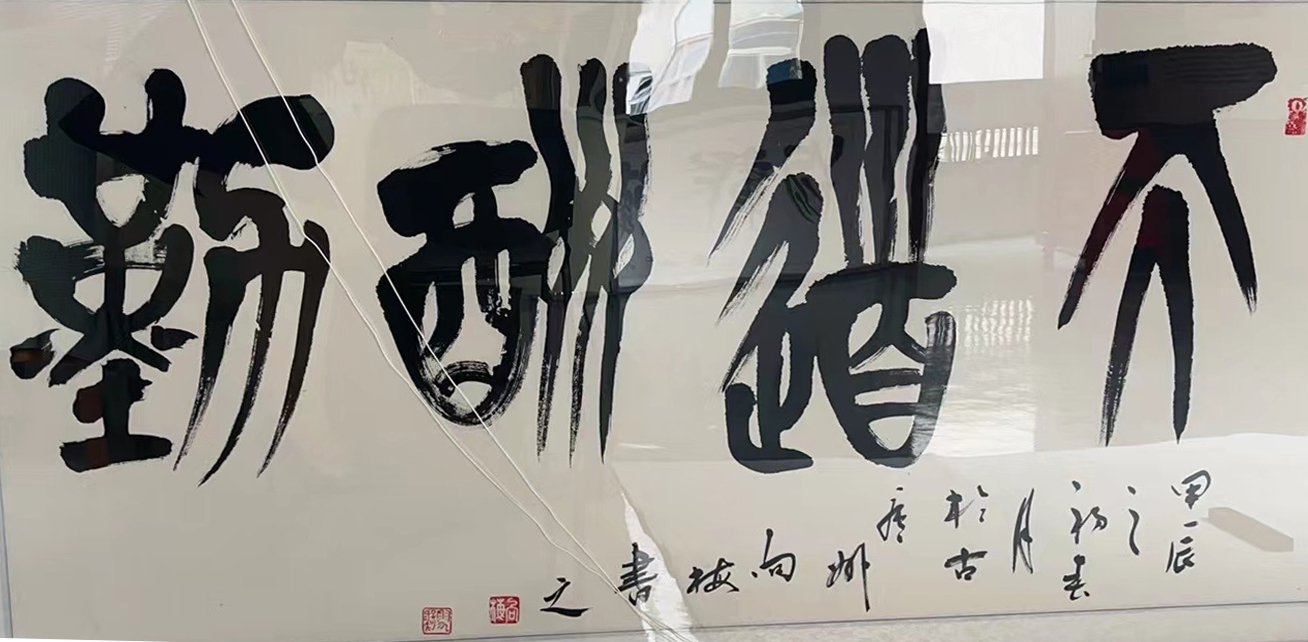 天道酬勤
甲辰之初春月於古唐州向梅書之